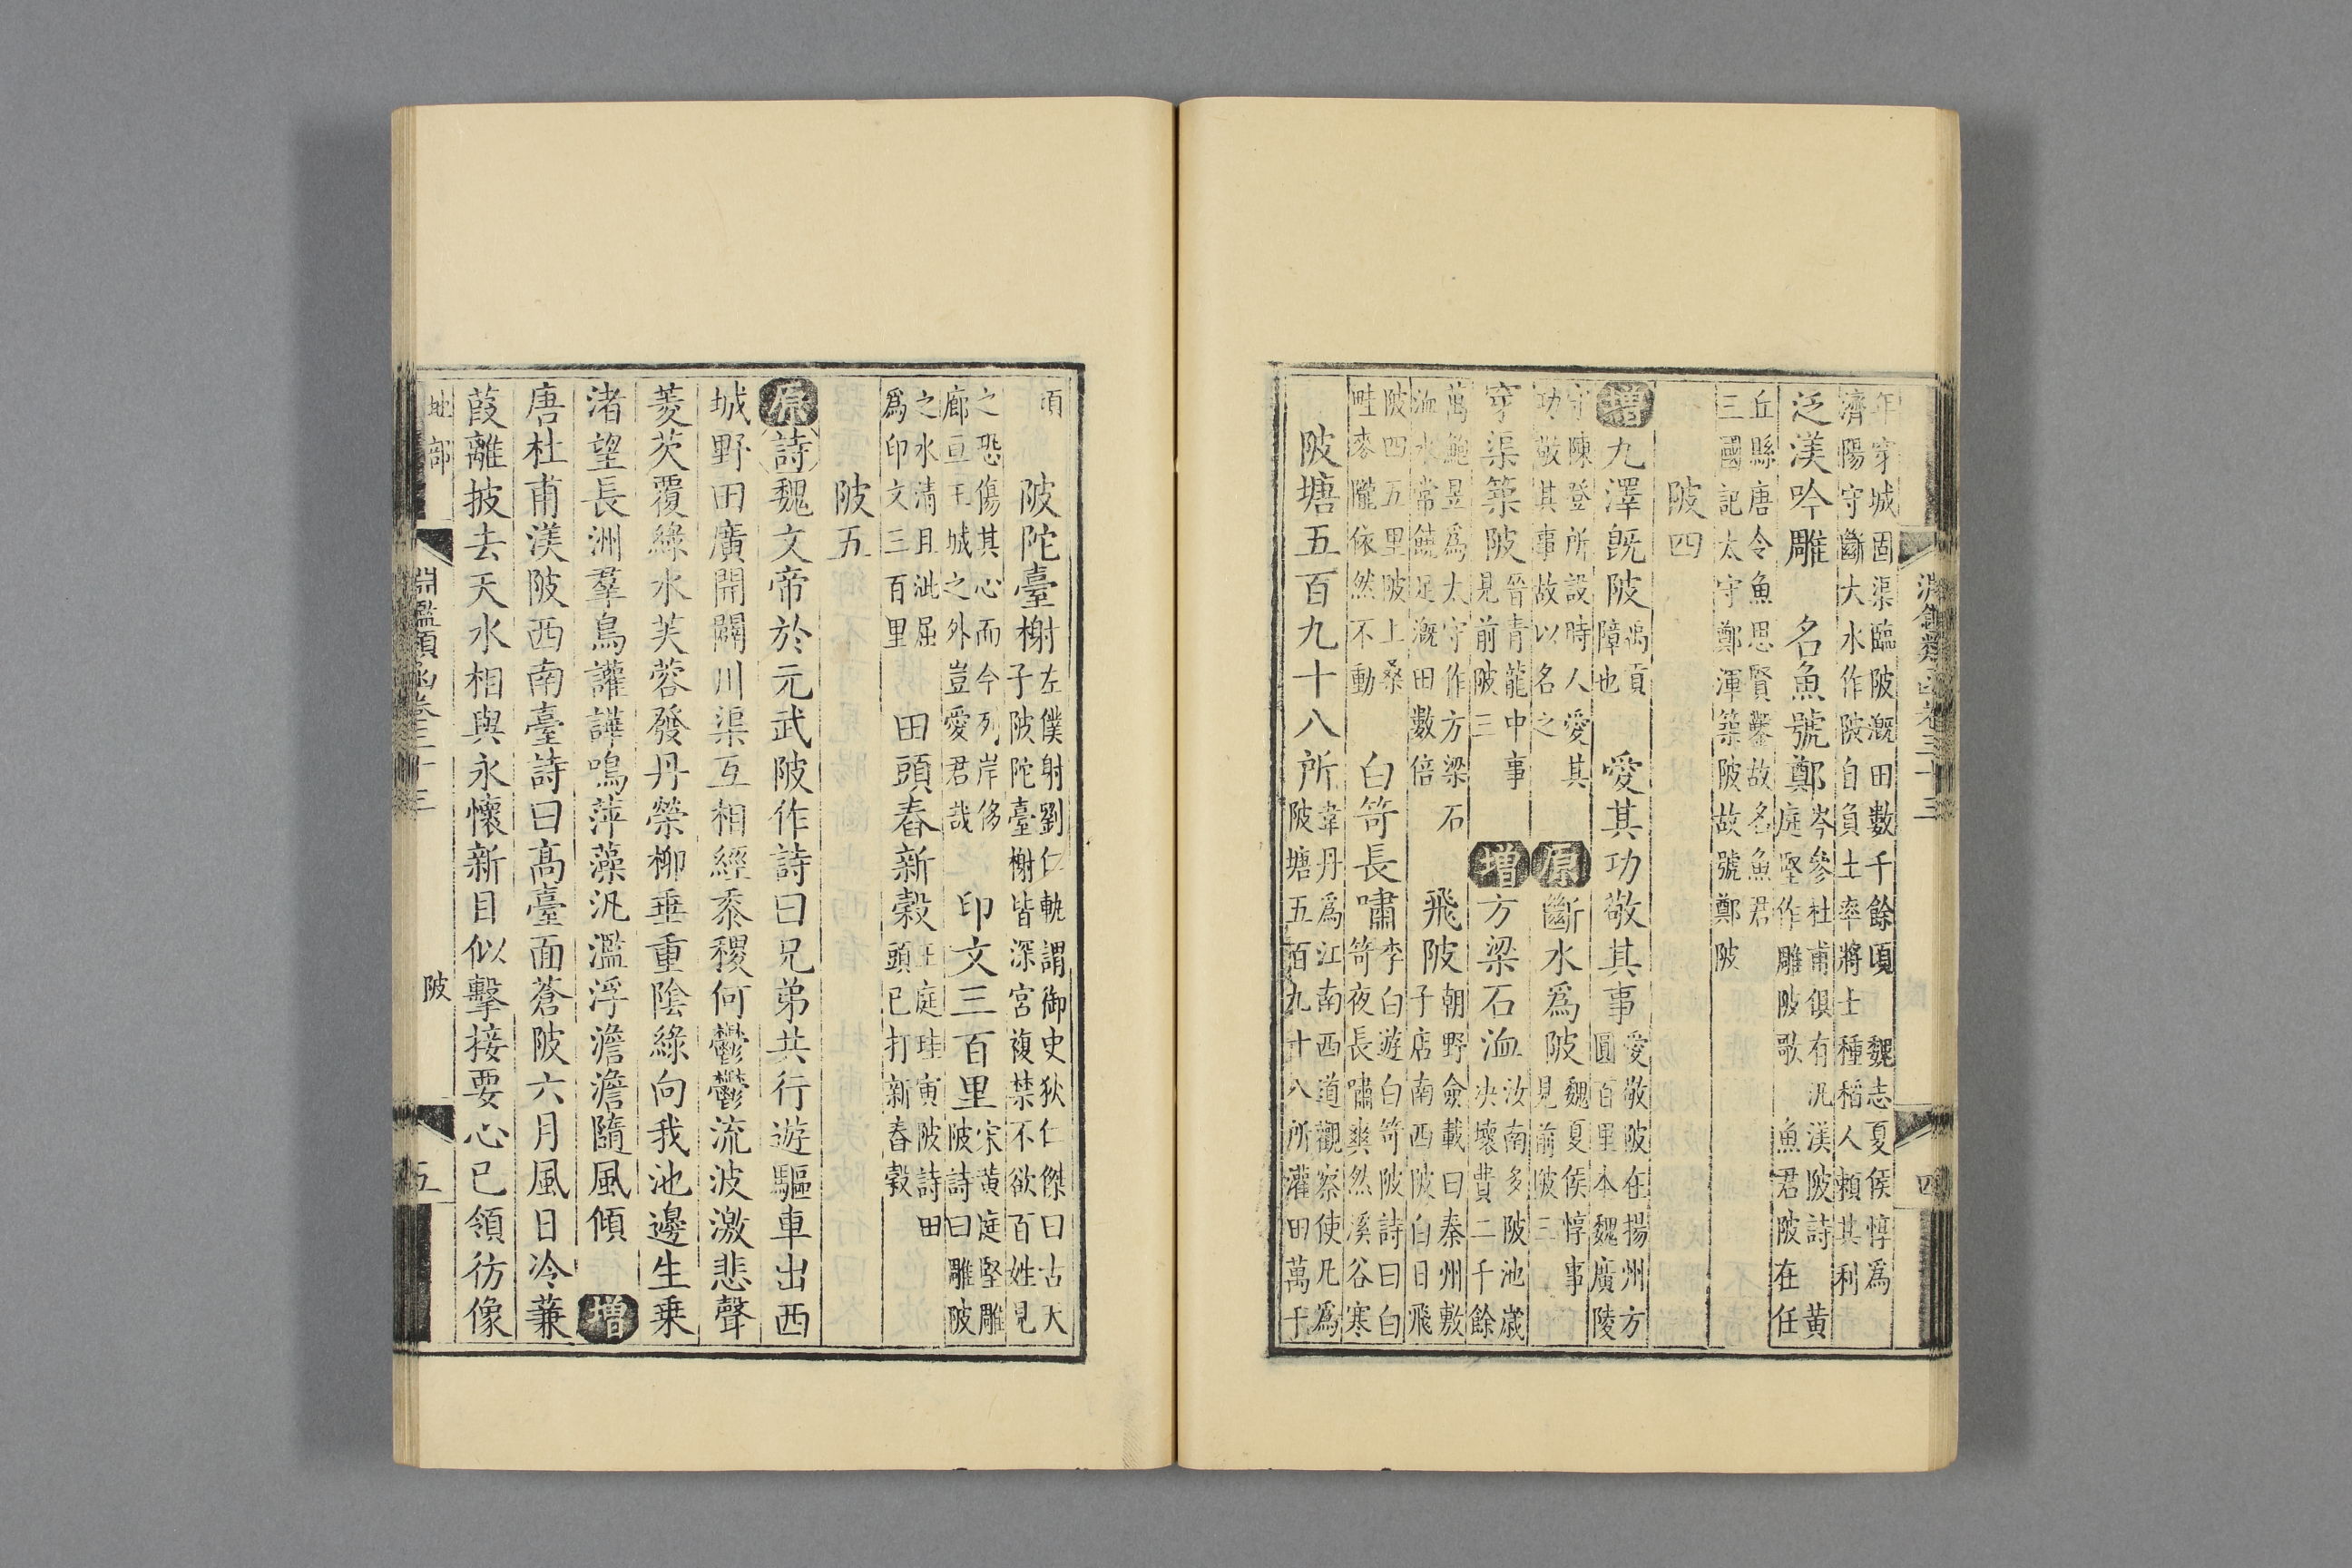 淵鑑類函卷三十三 四
年穿城固渠臨陂漑田數千餘頃 魏志夏侯惇爲
濟陽守斷大水作陂自負土率將士種稻人頼其利
泛渼吟雕 名魚號鄭
岑參杜甫俱有汎渼陂詩 黃
庭堅作雕陂歌 魚君陂在任
丘縣唐令魚思賢鑿故名魚君
三國記太守鄭渾築陂故號鄭陂
陂四
增九澤旣陂
禹貢
障也
愛其功敬其事
愛敬陂在揚州方
圓百里本魏廣陵
守陳登所設時人愛其
功敬其事故以名之
原斷水爲陂
魏夏侯惇事
見前陂三
穿渠築陂
晉青龍中事
見前陂三
增方梁石洫
汝南多陂池歲
決壞費二千餘
萬鮑昱爲太守作方梁石
洫水常饒足漑田數倍
飛陂
朝野僉載曰秦州敷
子店南西陂白日飛
陂四五里陂上桑
畦麥隴依然不動
白笴長嘯
李白遊白笴陂詩曰白
笴夜長嘯爽然溪谷寒
陂塘五百九十八所
韋丹爲江南西道觀察使凡爲
陂塘五百九十八所灌田萬千
頃
陂陀臺榭
左僕射劉仁軌謂御史狄仁傑曰古天
子陂陀臺榭皆深宮複禁不欲百姓見
之恐傷其心而今列岸侈
廊亘王城之外豈愛君哉
印文三百里
宋黃庭堅雕
陂詩曰雕陂
之水清且泚屈
爲印文三百里
田頭舂新穀
王庭珪寅陂詩田
頭已打新舂穀
陂五
原詩魏文帝於元武陂作詩曰兄弟共行遊驅車出西
城野田廣開闢川渠互相經黍稷何鬱鬱流波激悲聲
菱芡覆綠水芙蓉發丹榮柳垂重陰綠向我池邊生乗
渚望長洲羣鳥讙譁鳴萍藻汎濫浮澹澹隨風傾 增
唐杜甫渼陂西南臺詩曰高臺面蒼陂六月風日冷蒹
葭離披去天水相與永懷新目似擊接要心已領彷像
地部 淵鑑類函卷三十三 陂 五